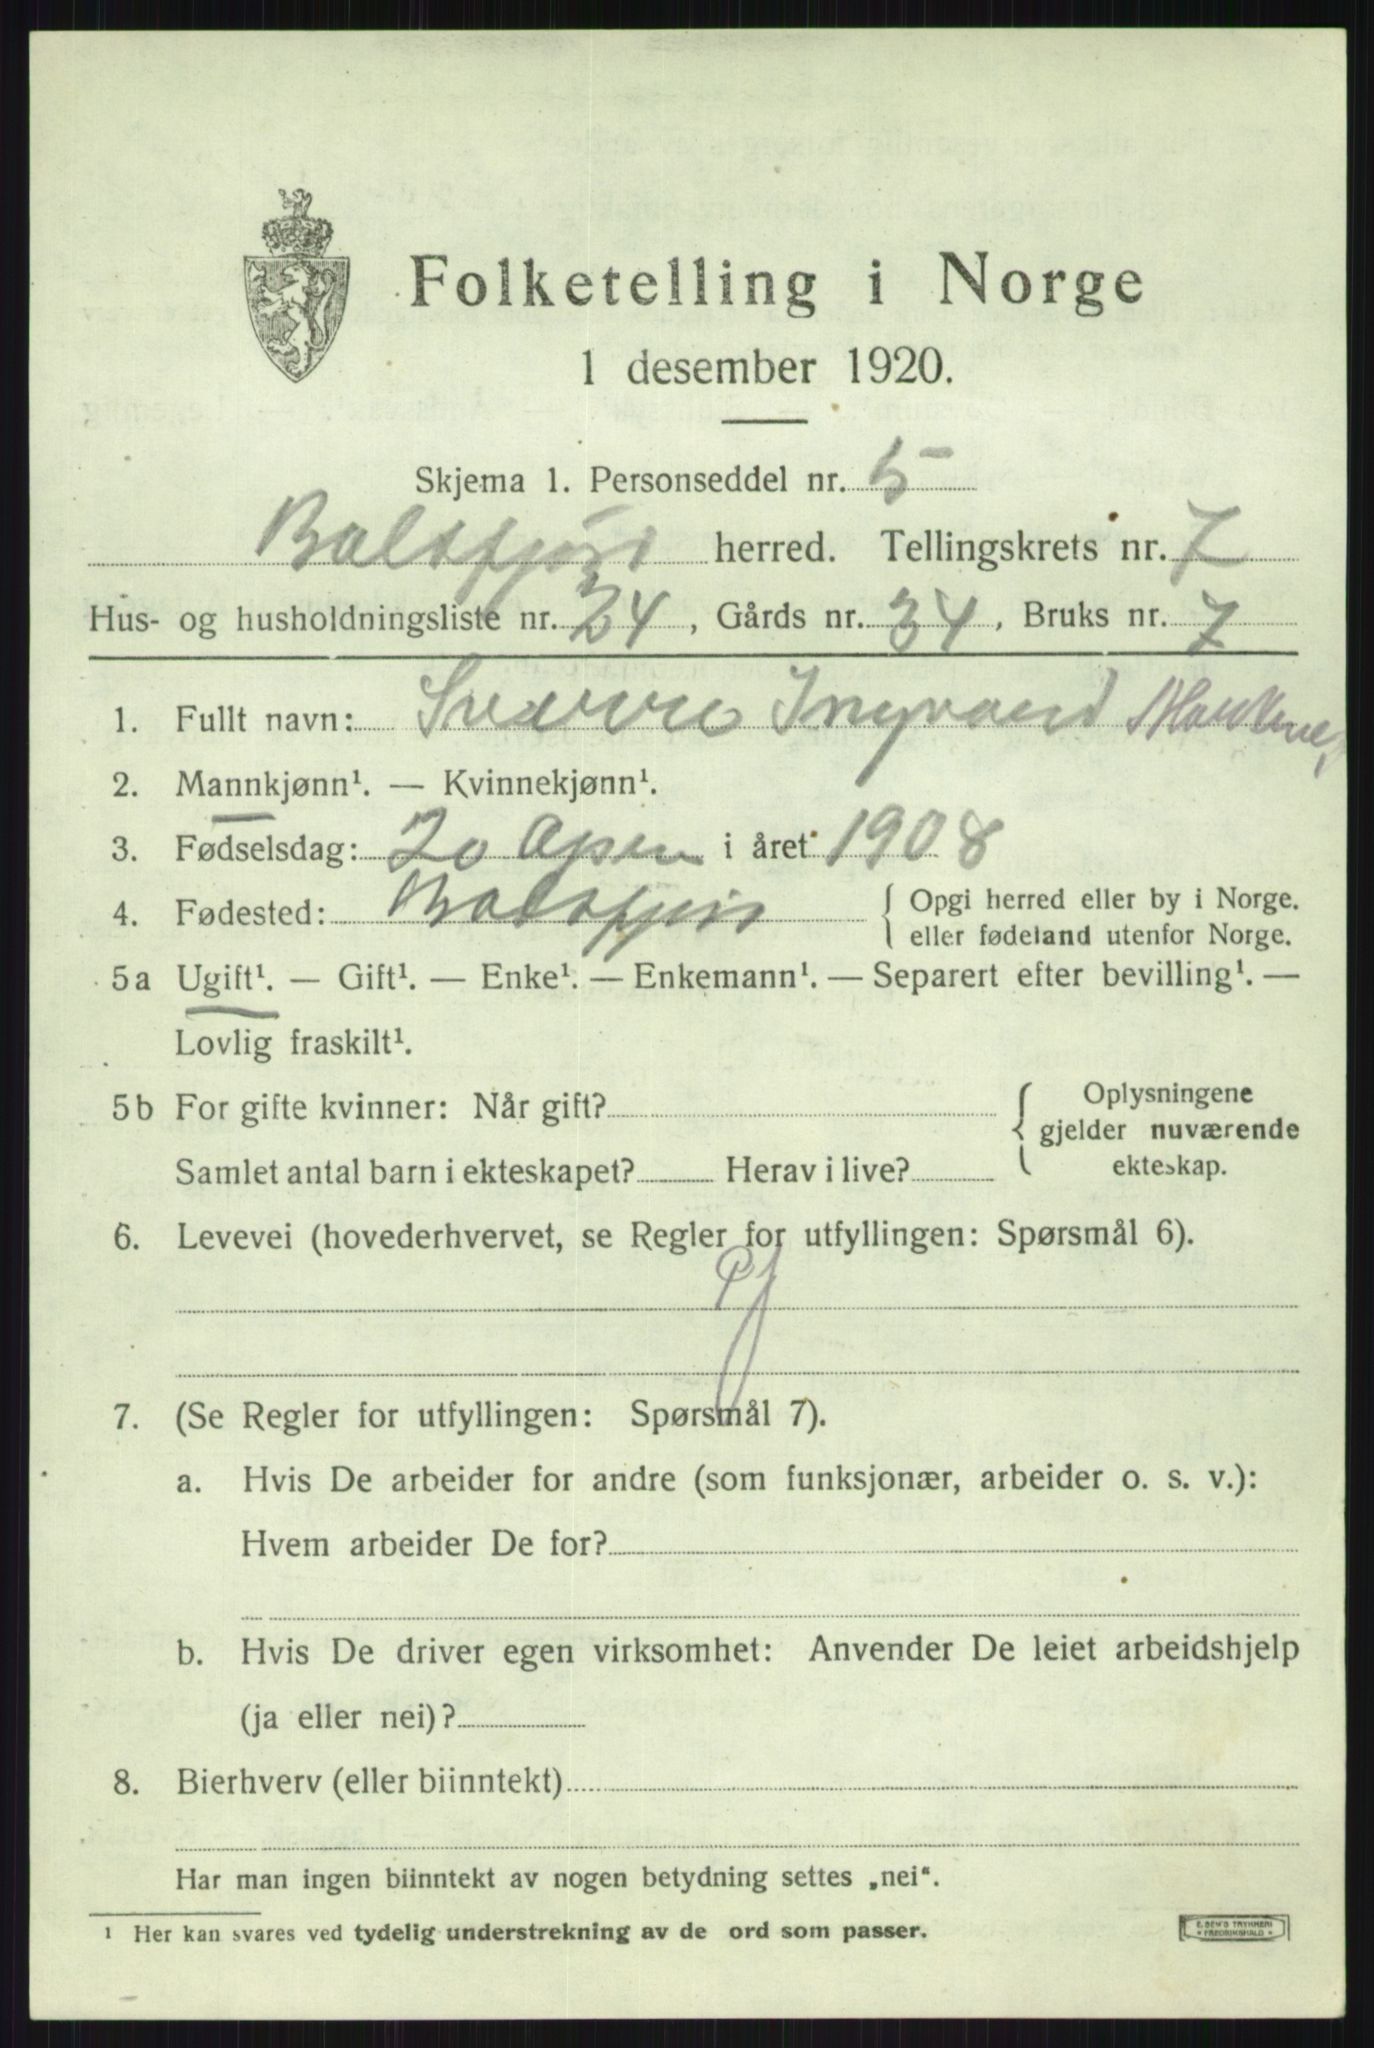 Folketelling i Norge
1 desember 1920.
Skjema 1. Personseddel nr. 5
Balsfjord herred. Tellingskrets nr. 7
Hus- og husholdningsliste nr. 34, Gårds nr. 34, Bruks nr. 7
1. Fullt navn: Sverre Ingvard
2. Mannkjønn¹. — Kvinnekjønn¹.
3. Fødselsdag: 20 i året 1908
4. Fødested: Balsfjord { Opgi herred eller by i Norge.
eller fødeland utenfor Norge.
5a Ugift¹. — Gift¹. — Enke¹. — Enkemann¹. — Separert efter bevilling¹. —
Lovlig fraskilt¹.
5b For gifte kvinner: Når gift? { Oplysningene
gjelder nuværende
Samlet antal barn i ekteskapet? Herav i live? ekteskap.
6. Levevei (hovederhvervet, se Regler for utfyllingen: Spørsmål 6).
7. (Se Regler for utfyllingen: Spørsmål 7).
a. Hvis De arbeider for andre (som funksjonær, arbeider o. s. v.):
Hvem arbeider De for?
b. Hvis De driver egen virksomhet: Anvender De leiet arbeidshjelp
(ja eller nei)?
8. Bierhverv (eller biinntekt)
Har man ingen biinntekt av nogen betydning settes „nei“.
¹ Her kan svares ved tydelig understrekning av de ord som passer.
E. SEM'S TRYKKERI
* FREDRIKSHALD *